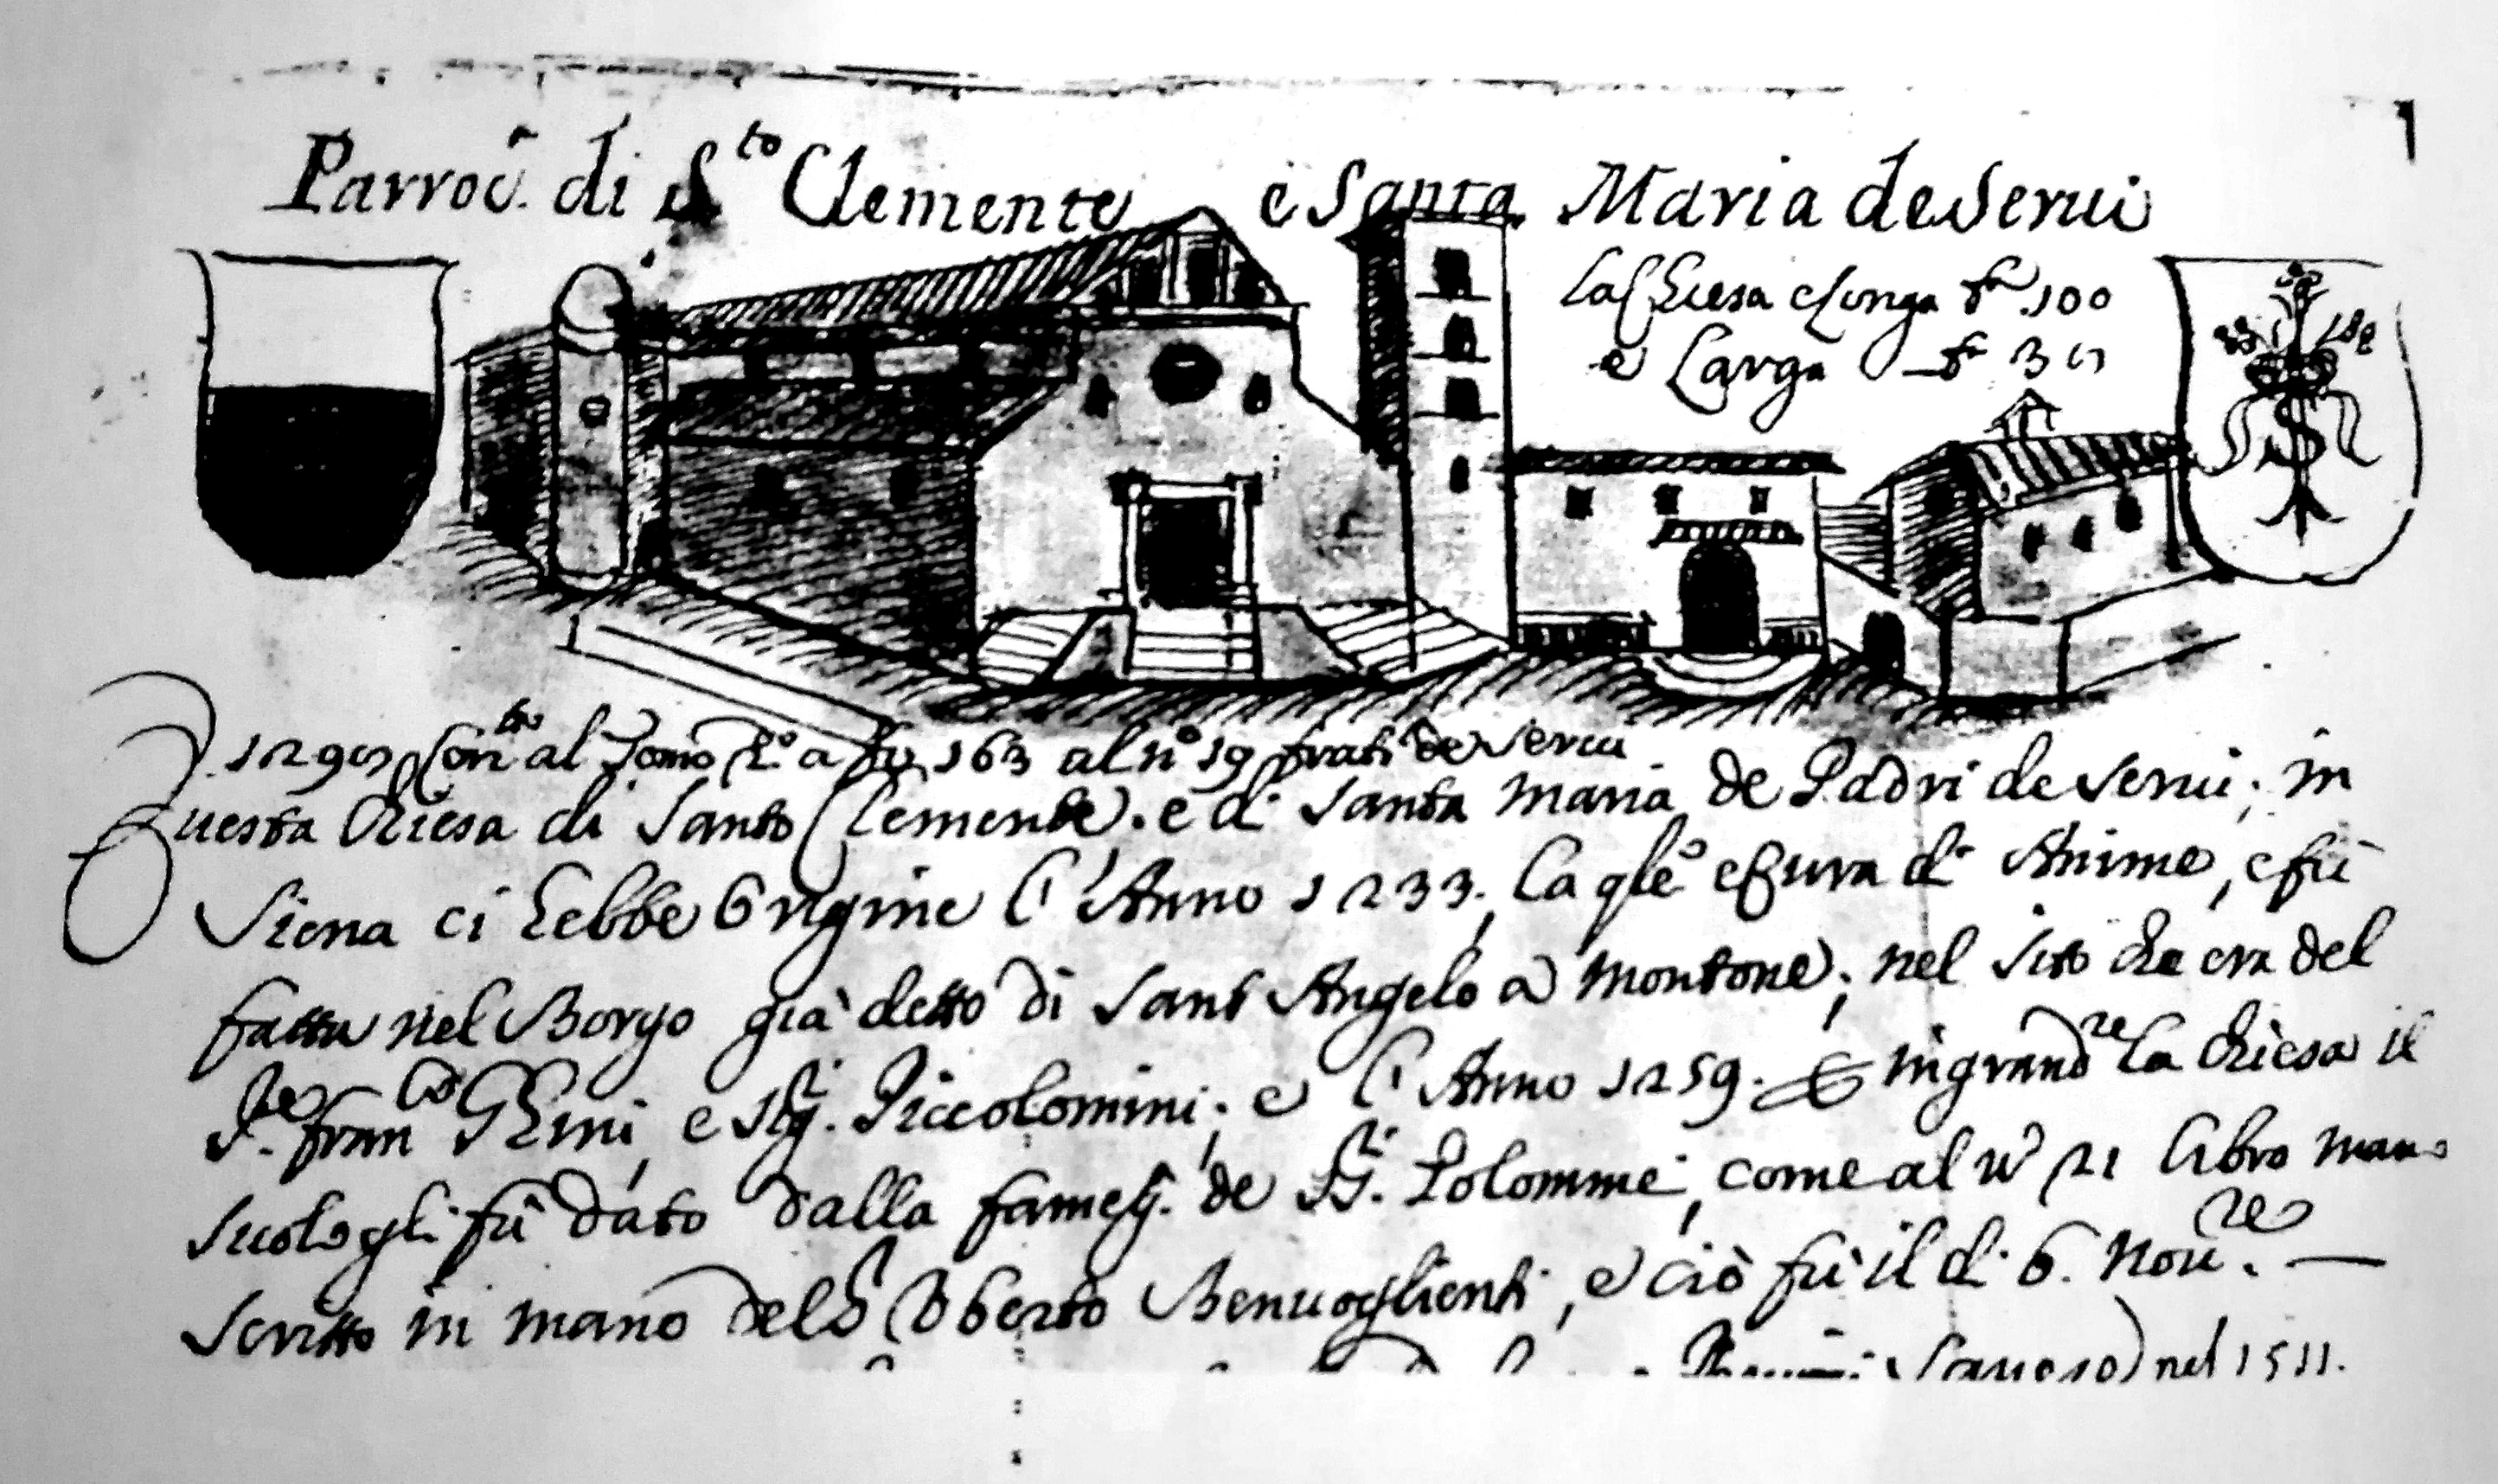 Parroc. di S.to Clemente e Santa Maria de Serui
la Chiesa e longa fa 100
e Larga fa
al Tomo 2.o a fo 163 al n.o 19 frati de Serui
Questa Chiesa di Santo Clemente. e di Santa Maria de Padri de Serui; in
Siena ci hebbe Origine l'Anno 1233; la qle e Cura di Anime, e fù
fatta nel Borgo già detto di Sant Angelo a Montone; nel sito che era del
e Sig.ri Piccolomini; e l'Anno 1259. ingrandre la Chiesa il
suolo gli fù dato dalla fameg. de SS.ri Tolommei, come al n.o 21 libro mano
scritto in mano del S.r Vberto Benuoglienti, e ciò fù il di 6. Noure. —
nel 1511.